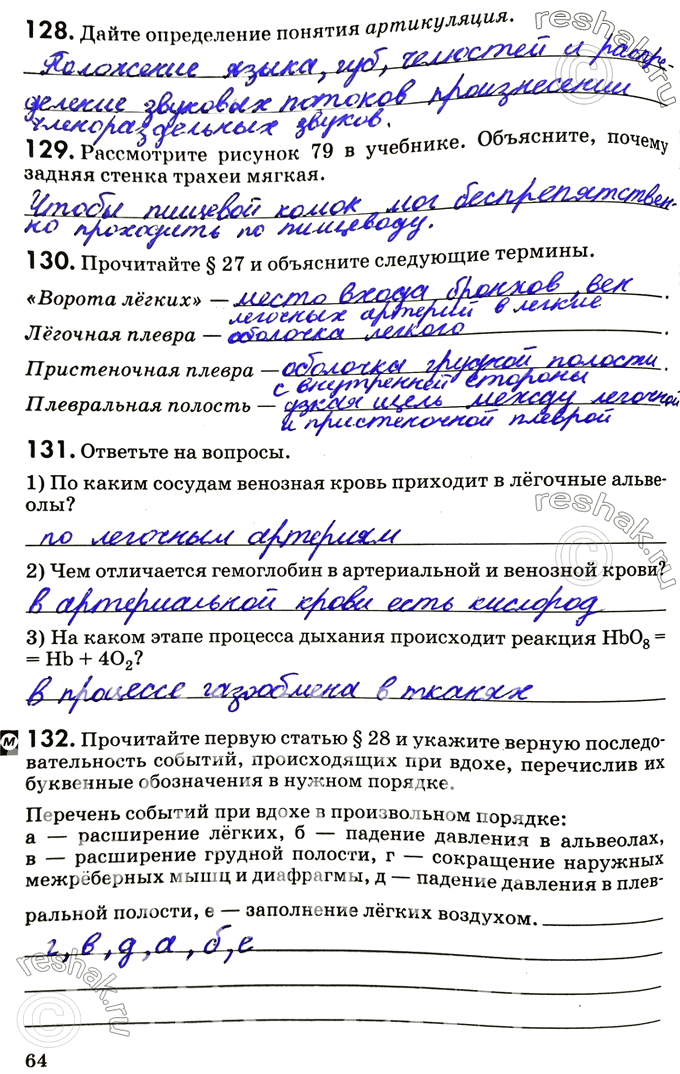 128. Дайте определение понятия артикуляция.
Положение языка, губ, челюстей и распре-
деление звуковых потоков произнесении
членораздельных звуков.
129. Рассмотрите рисунок 79 в учебнике. Объясните, почему
задняя стенка трахеи мягкая.
Чтобы пищевой комок мог беспрепятствен-
но проходить по пищеводу.
130. Прочитайте § 27 и объясните следующие термины.
«Ворота лёгких» — место входа бронхов, вен
легочных артерий в легкие
Лёгочная плевра — оболочка легкого.
Пристеночная плевра — оболочка грудной полости.
с внутренней стороны
Плевральная полость — узкая щель между легочной
и пристеночной плеврой
131. Ответьте на вопросы.
1) По каким сосудам венозная кровь приходит в лёгочные альве-
олы?
по легочным артериям
2) Чем отличается гемоглобин в артериальной и венозной крови?
в артериальной крови есть кислород
3) На каком этапе процесса дыхания происходит реакция HbO₈ =
= Hb + 4O₂?
в процессе газообмена в тканях
М 132. Прочитайте первую статью § 28 и укажите верную последо-
вательность событий, происходящих при вдохе, перечислив их
буквенные обозначения в нужном порядке.
Перечень событий при вдохе в произвольном порядке:
а — расширение лёгких, б — падение давления в альвеолах,
в — расширение грудной полости, г — сокращение наружных
межрёберных мышц и диафрагмы, д — падение давления в плев-
ральной полости, е — заполнение лёгких воздухом.
г, в, д, а, б, е
64
reshak.ru
reshak.ru
reshak.ru